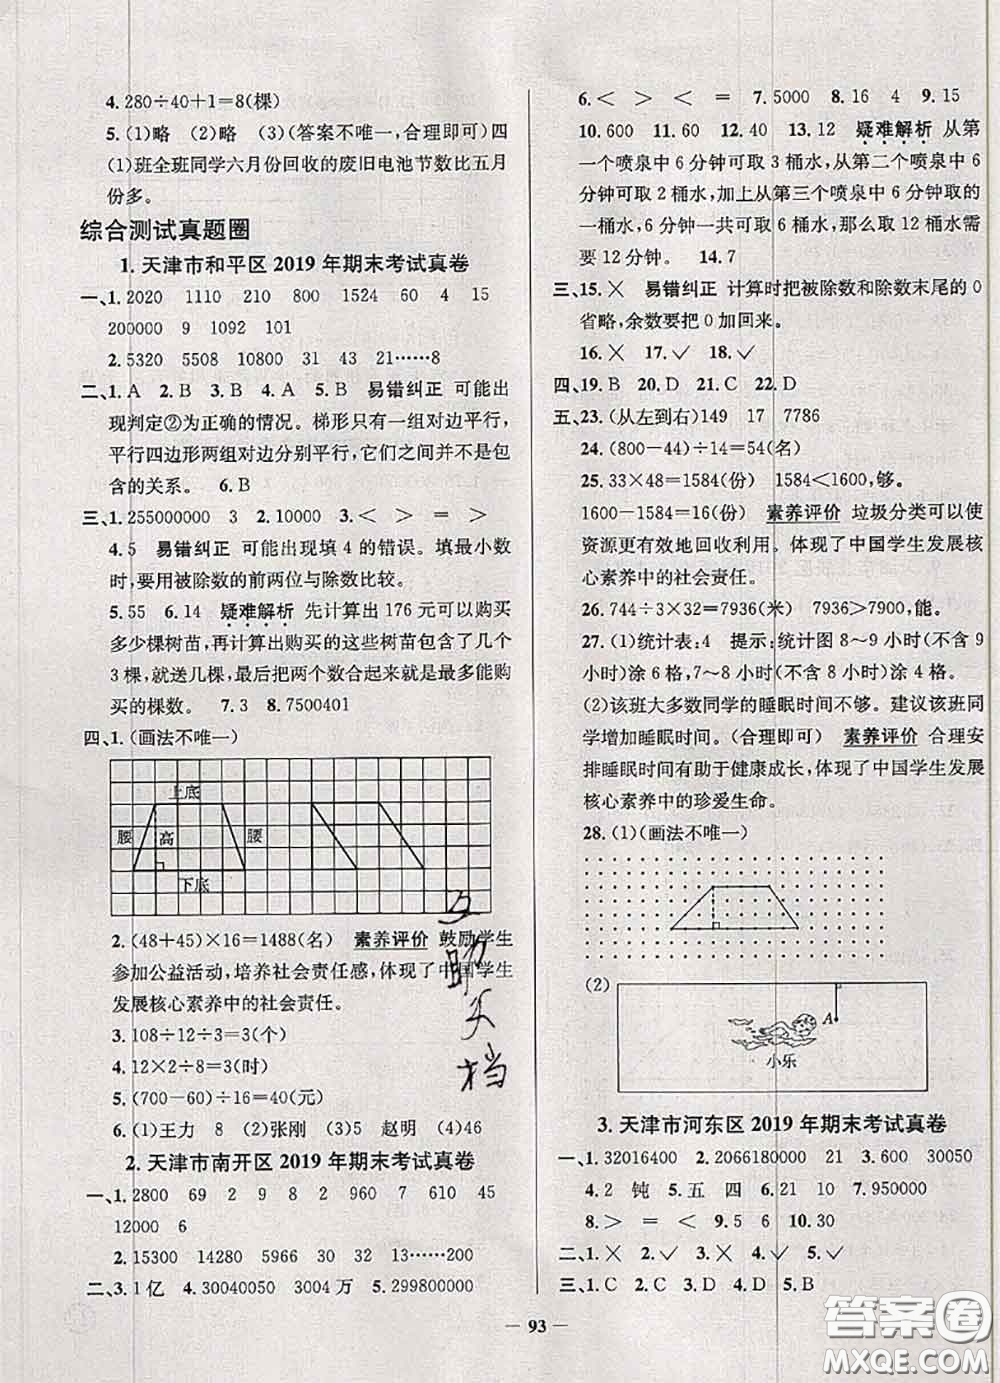 4. 280÷40+1=8(棵)
5. (1)略 (2)略 (3)(答案不唯一,合理即可)四
(1)班全班同学六月份回收的废旧电池节数比五月
份多。
综合测试真题圈
1. 天津市和平区 2019 年期末考试真卷
一、1. 2020 1110 210 800 1524 60 4 15
200000 9 1092 101
2. 5320 5508 10800 31 43 21……8
二、1. A 2. B 3. B 4. A 5. B 易错纠正 可能出
现判定②为正确的情况。梯形只有一组对边平行,
平行四边形两组对边分别平行,它们之间并不是包
含的关系。 6. B
三、1. 255000000 3 2. 10000 3. < > = >
4. 5 易错纠正 可能出现填 4 的错误。填最小数
时,要用被除数的前两位与除数比较。
5. 55 6. 14 疑难解析 先计算出 176 元可以购买
多少棵树苗,再计算出购买的这些树苗包含了几个
3 棵,就送几棵,最后把两个数合起来就是最多能购
买的棵数。 7. 3 8. 7500401
四、1. (画法不唯一)
上底
腰 高 腰
下底
2. (48+45)×16=1488(名) 素养评价 鼓励学生
参加公益活动,培养社会责任感,体现了中国学生
发展核心素养中的社会责任。
3. 108÷12÷3=3(个)
4. 12×2÷8=3(时)
5. (700-60)÷16=40(元)
6. (1)王力 8 (2)张刚 (3)5 赵明 (4)46
2. 天津市南开区 2019 年期末考试真卷
一、1. 2800 69 2 9 8 2 960 7 610 45
12000 6
2. 15300 14280 5966 30 32 13……200
二、3. 1 亿 4. 30040050 3004 万 5. 299800000
6. < > < = 7. 5000 8. 16 4 9. 15
10. 600 11. 60 12. 40 13. 12 疑难解析 从第
一个喷泉中 6 分钟可取 3 桶水,从第二个喷泉中
6 分钟可取 2 桶水,加上从第三个喷泉中 6 分钟取的
一桶水,6 分钟一共可取 6 桶水,那么取 12 桶水需
要 12 分钟。 14. 7
三、15. ✕ 易错纠正 计算时把被除数和除数末尾的 0
省略,余数要把 0 加回来。
16. ✕ 17. ✓ 18. ✓
四、19. B 20. D 21. C 22. D
五、23. (从左到右)149 17 7786
24. (800-44)÷14=54(名)
25. 33×48=1584(份) 1584<1600,够。
1600-1584=16(份) 素养评价 垃圾分类可以使
资源更有效地回收利用。体现了中国学生发展核
心素养中的社会责任。
26. 744÷3×32=7936(米) 7936>7900,能。
27. (1)统计表:4 提示:统计图 8~9 小时(不含 9
小时)涂 6 格,7~8 小时(不含 8 小时)涂 4 格。
(2)该班大多数同学的睡眠时间不够。建议该班同
学增加睡眠时间。(合理即可) 素养评价 合理安
排睡眠时间有助于健康成长,体现了中国学生发展
核心素养中的珍爱生命。
28. (1)(画法不唯一)
(2)
A
小乐
3. 天津市河东区 2019 年期末考试真卷
一、1. 32016400 2. 2066180000 3. 600 30050
4. 2 钝 5. 五 四 6. 21 10 7. 950000
8. > = < 9. 5 6 10. 30
二、1. ✕ 2. ✓ 3. ✕ 4. ✓ 5. ✓
三、1. C 2. C 3. D 4. D 5. B
— 93 —
答案圈
MXQE.COM